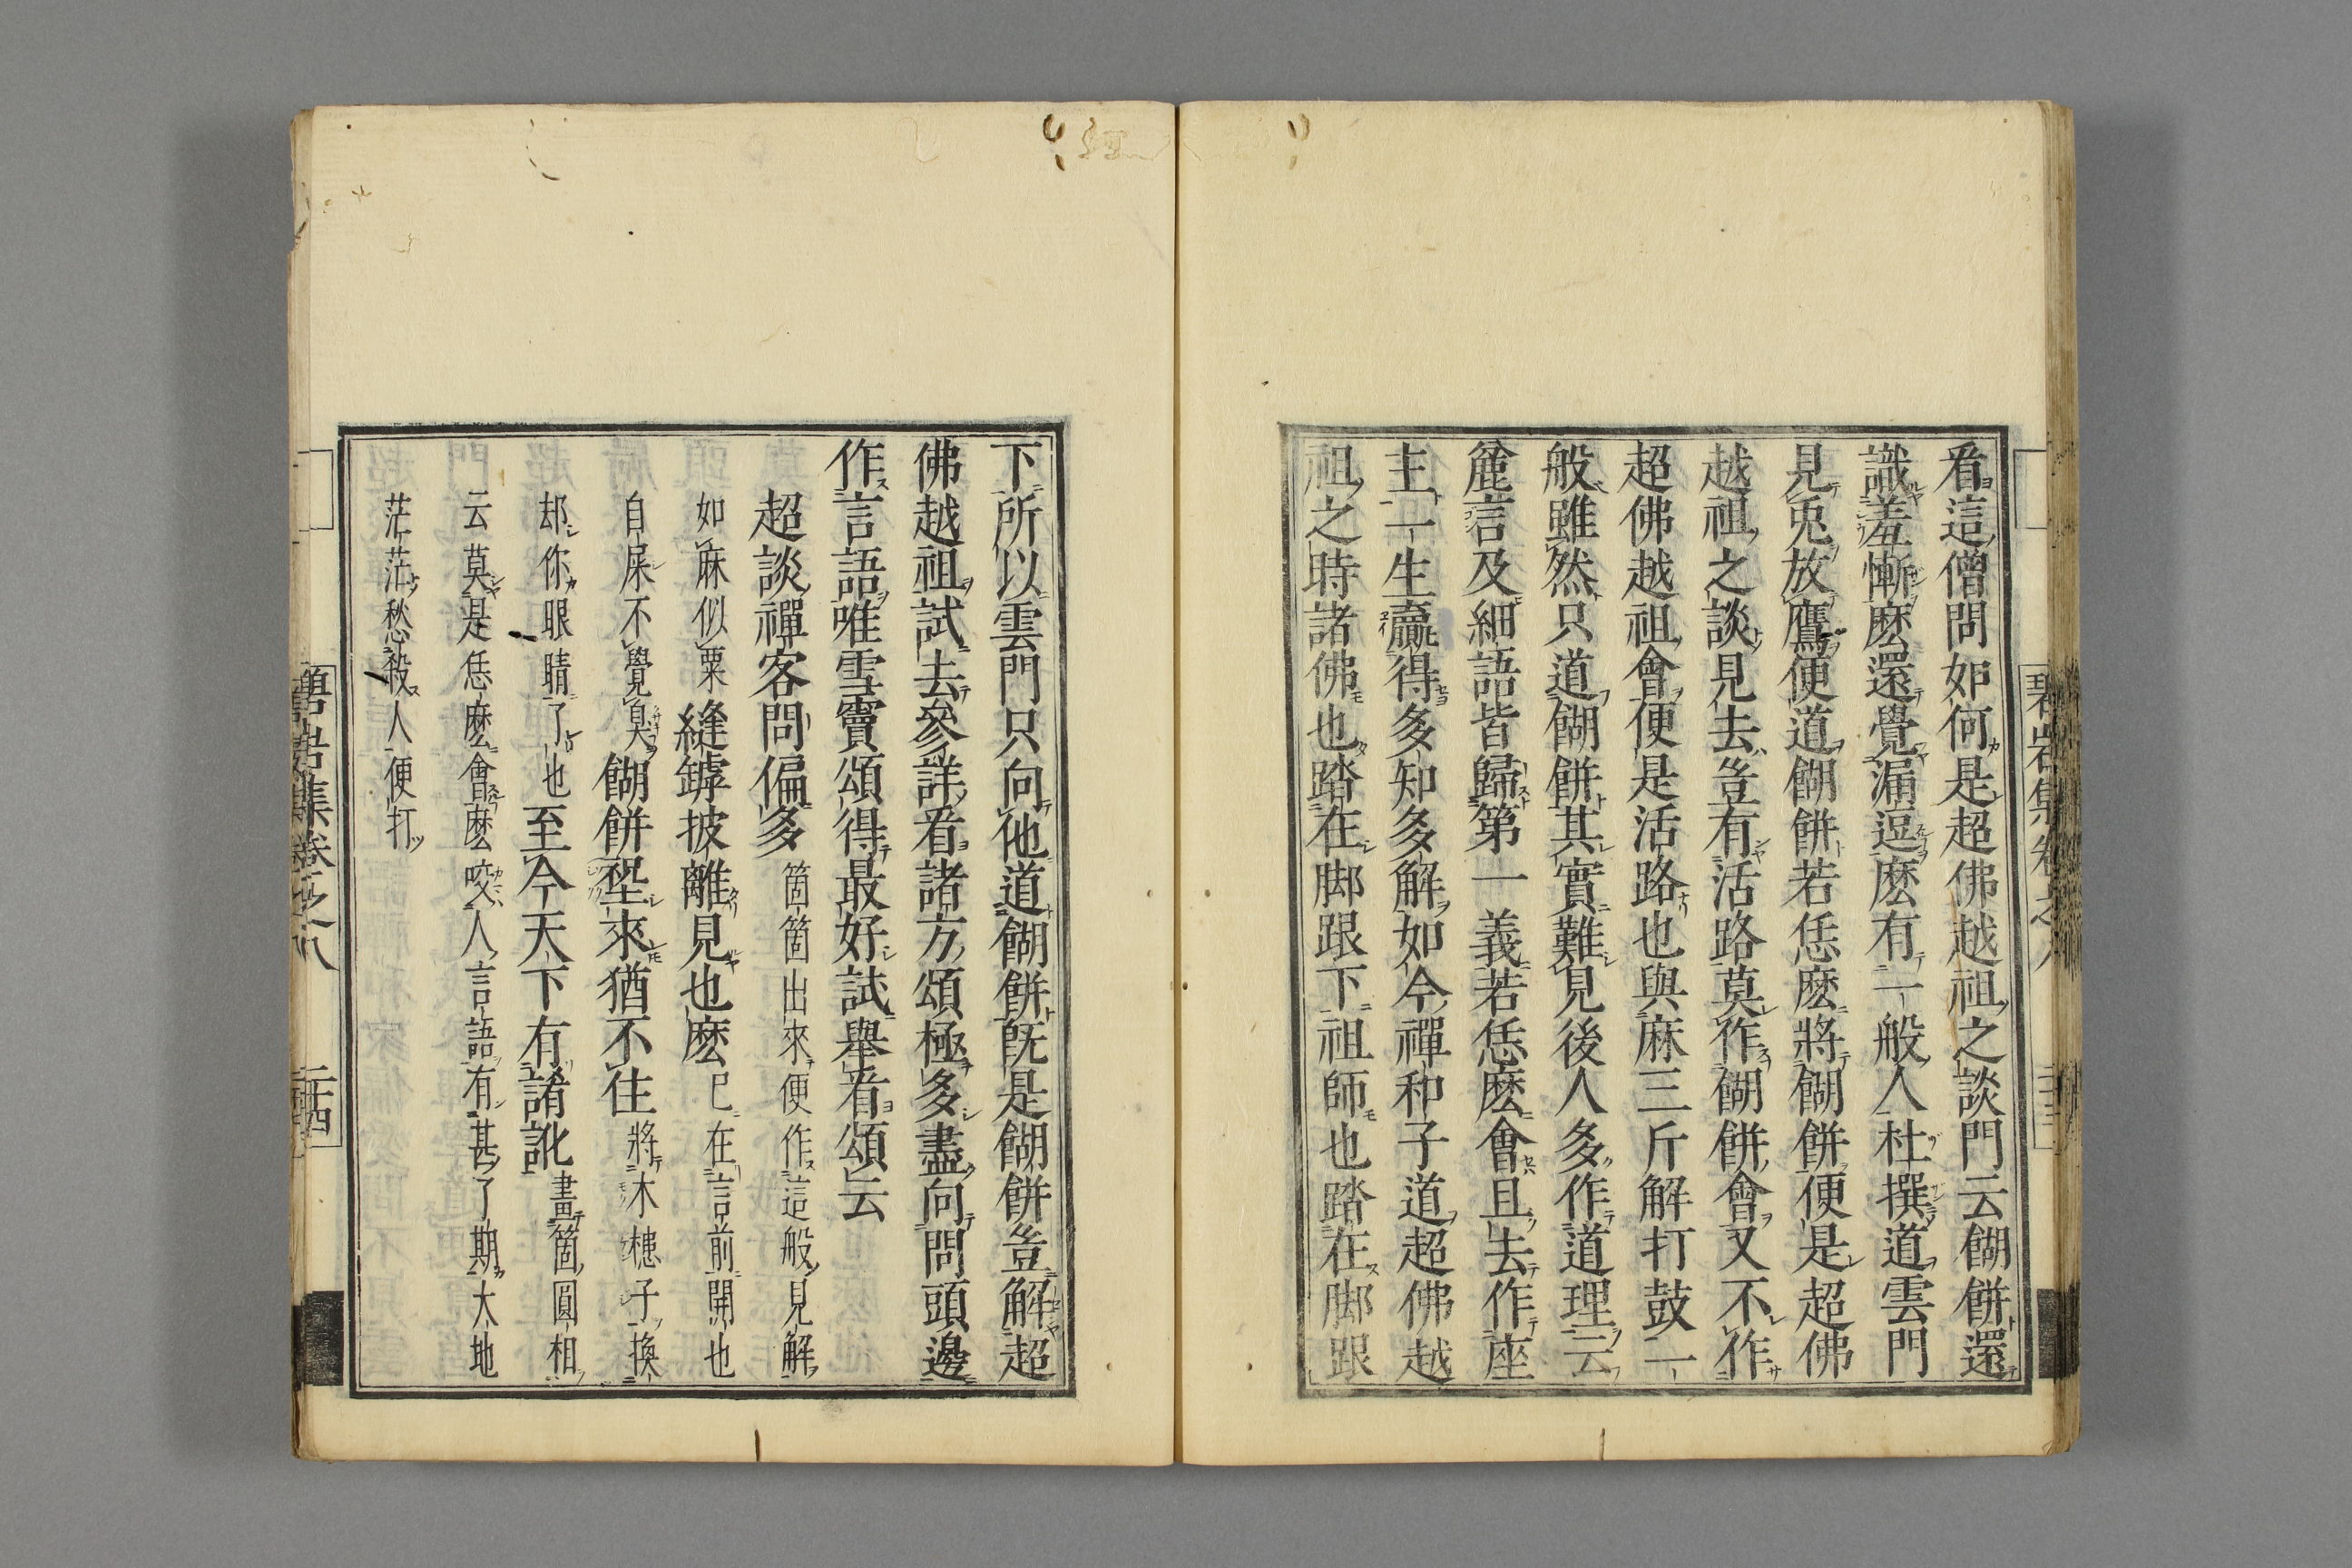 看這僧問如何是超佛越祖之談門云餬餅還
識羞慚麽還覺漏逗麽有一般人杜撰道雲門
見兎放鷹便道餬餅若恁麽將餬餅便是超佛
越祖之談見去豈有活路莫作餬餅會又不作
超佛越祖會便是活路也與麻三斤解打鼓一
般雖然只道餬餅其實難見後人多作道理云
麄言及細語皆歸第一義若恁麽會且去作座
主一生贏得多知多解如今禪和子道超佛越
祖之時諸佛也踏在脚跟下祖師也踏在脚跟
下所以雲門只向他道餬餅旣是餬餅豈解超
佛越祖試去參詳看諸方頌極多盡向問頭邊
作言語唯雪竇頌得最好試舉看頌云
超談禪客問偏多箇箇出來便作這般見解
如麻似粟縫罅披離見也麽已在言前開也
自屎不覺臭餬餅𡎺來猶不住將木槵子換
却你眼睛了也至今天下有誵訛畫箇圓相
云莫是恁麽會麽咬人言語有甚了期大地
茫茫愁殺人便打
碧岩集卷之八
二十四